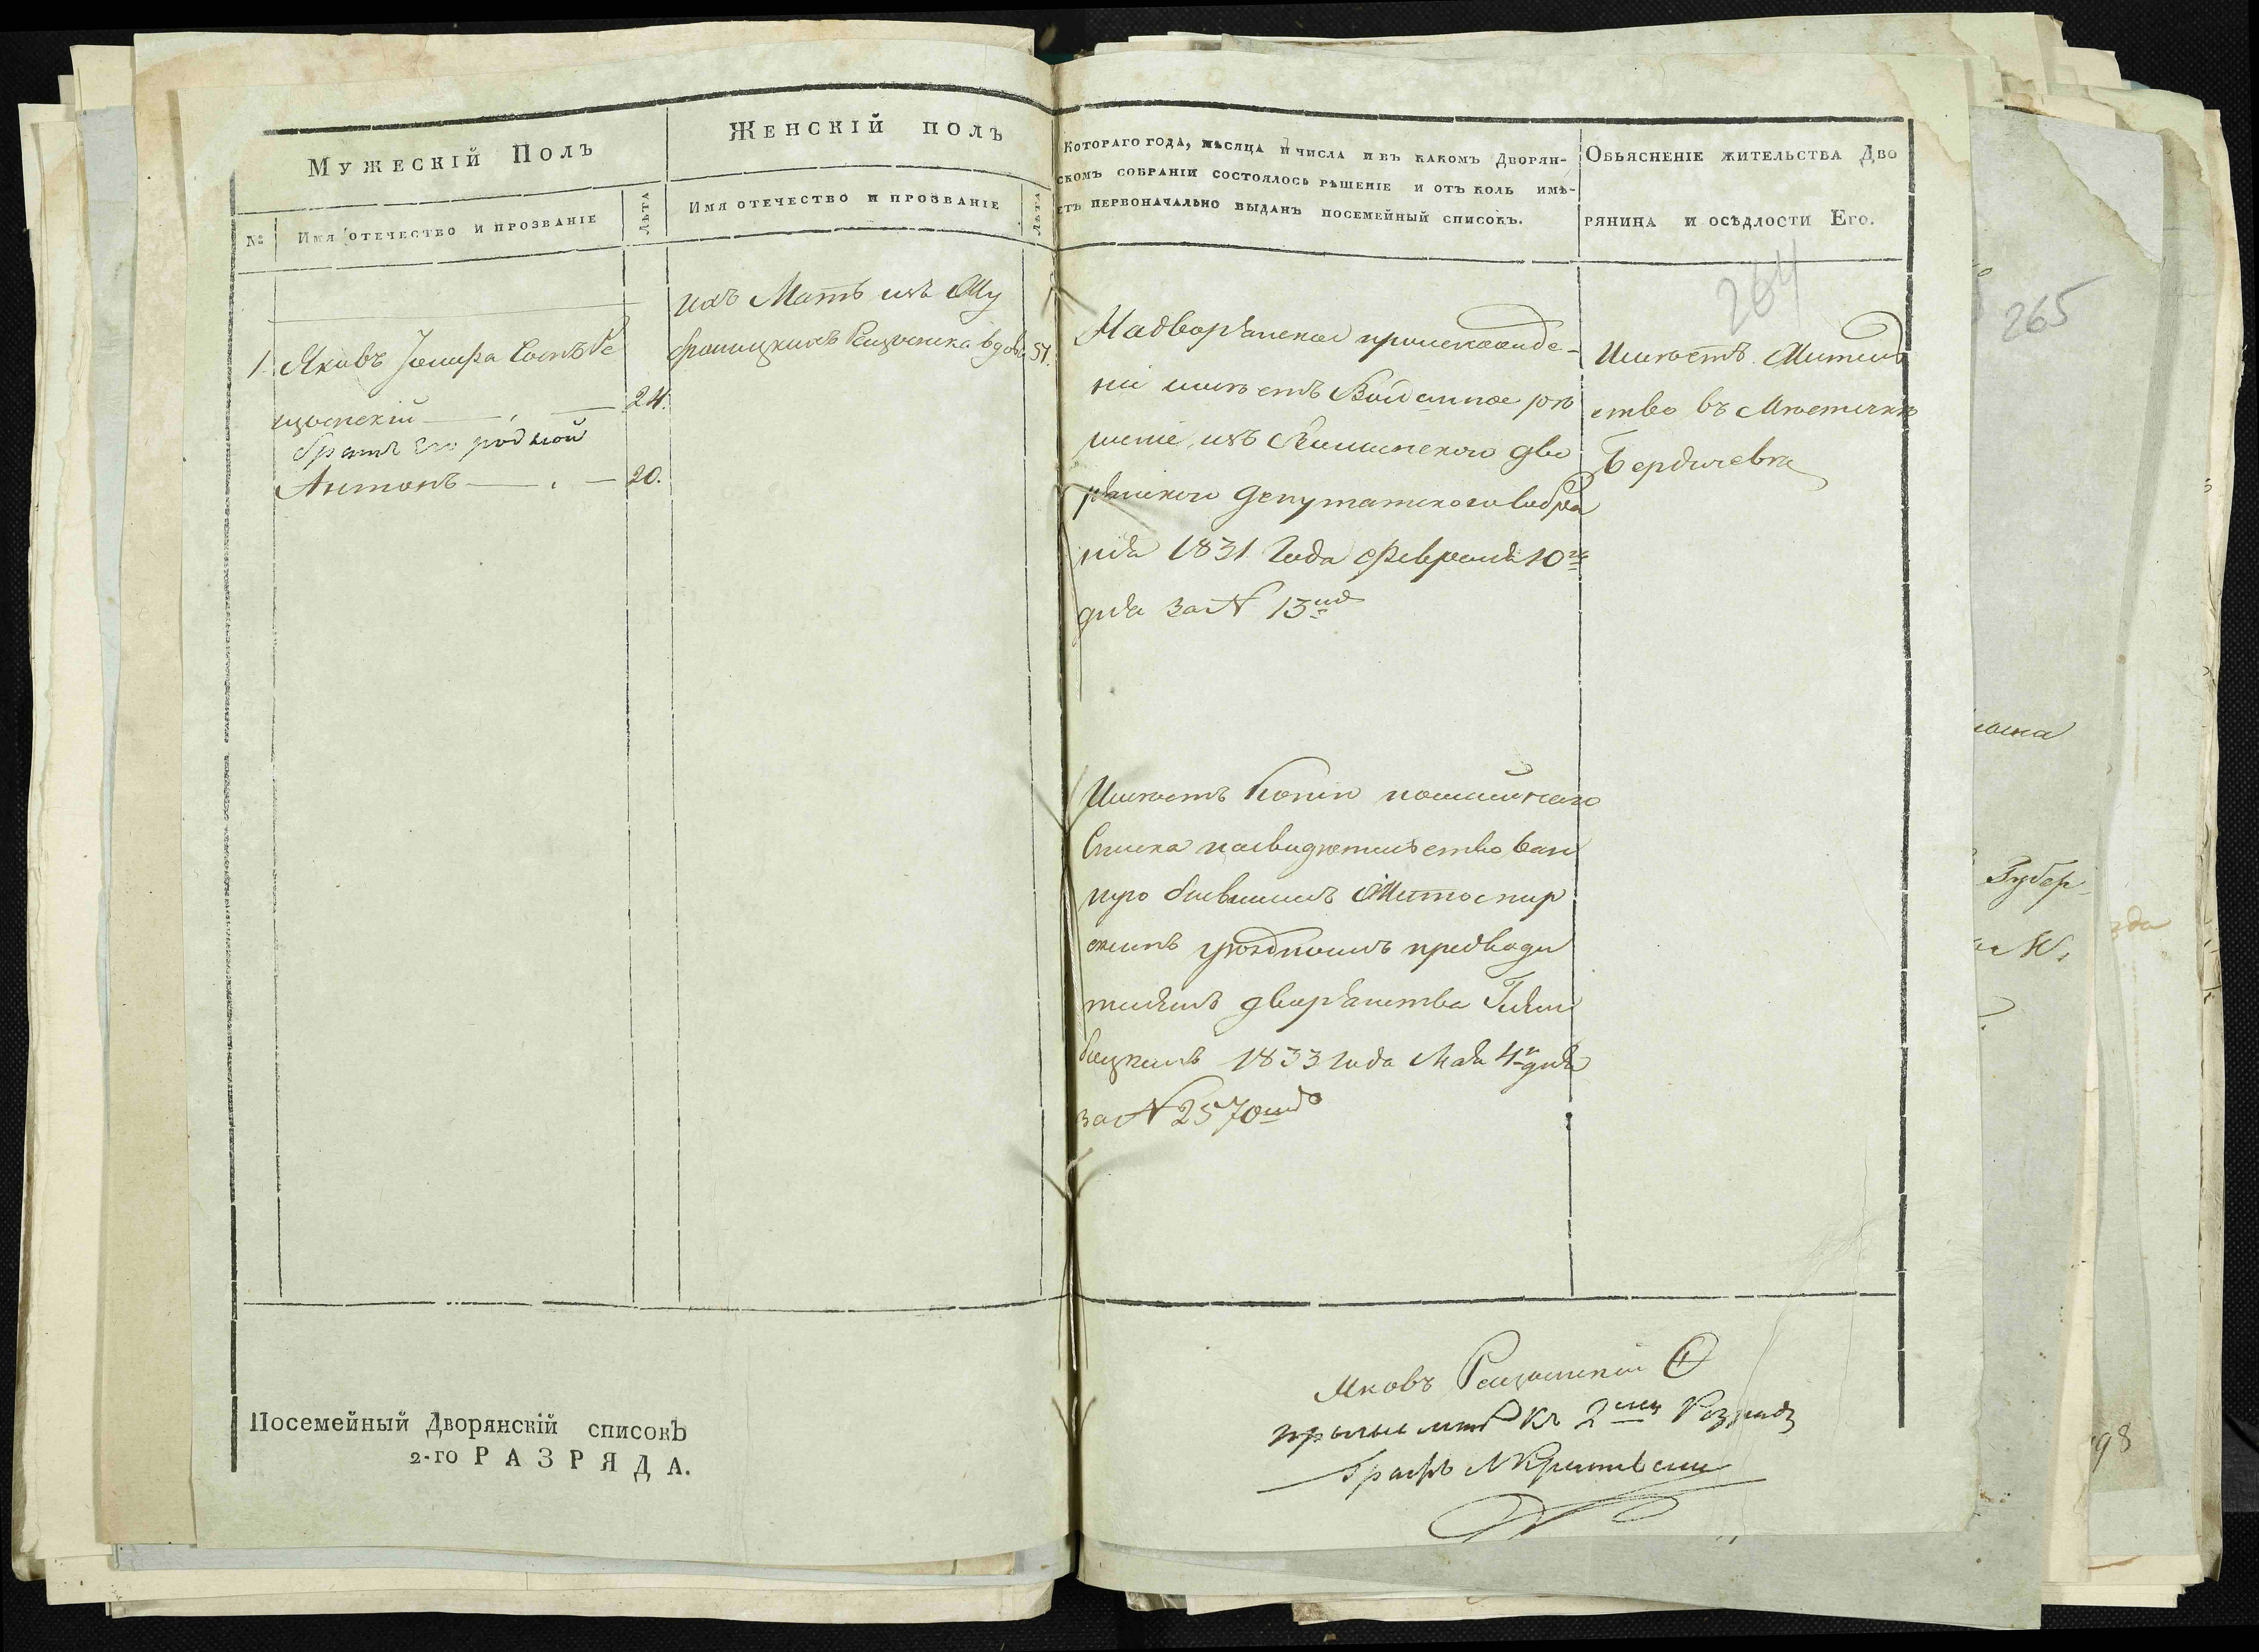 Мужескій Полъ
Женскій полъ
№
Имя отечество и прозваніе
Лѣта
Имя отечество и прозваніе
Лѣта
Котораго года, мѣсяца и числа и въ какомъ Дворян-
скомъ собраніи состоялось рѣшеніе и отъ коль имѣ-
етъ первоначально выданъ посемейный списокъ.
Обьясненіе жительства Дво
рянина и осѣдлости Его.
264
265
1. Яковъ Іосифа Сынъ Ре
щинскій 24.
братъ Его родной
Антонъ 20.
ихъ Мать изъ
вдова 51.
На дворянское происхожде-
ніе имѣетъ рѣ
шеніе изъ дво
рянского депутатского собра
нія 1831 Года Февраля 10го
дня за N 13мъ
Имѣетъ Копію посемейного
Списка засвидѣтельствован
ную бывшимъ Житомир
скимъ уѣзднымъ предводи
телемъ дворянства
1833 года Мая 4 дня
за N 2570мъ
Имѣетъ Житель
ство въ Мѣстечкѣ
Бердичевѣ
Яковъ
къ 2му Разряду
Графъ
Посемейный Дворянскій списокъ
2-го РАЗРЯДА.
Губер
98